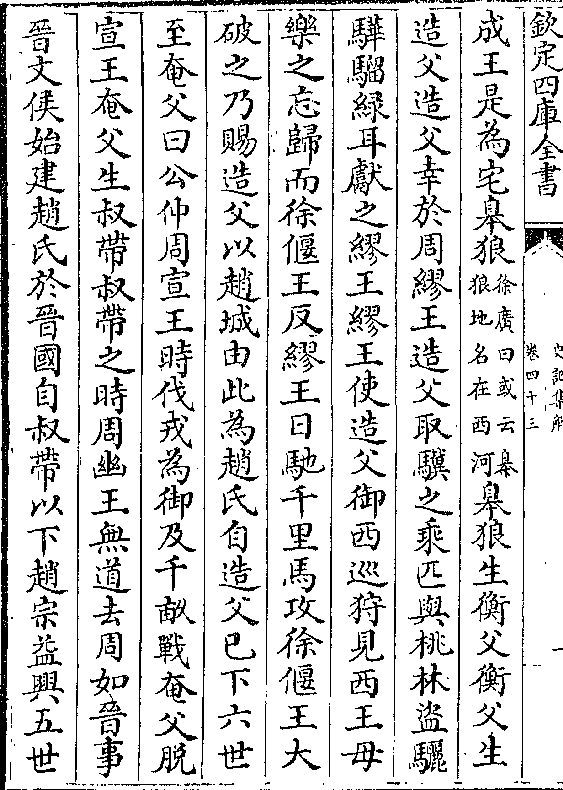 欽定四庫全書
史記集解
卷四十三
一
成王是為宅臯狼
徐廣曰或云臯
狼地名在西河
臯狼生衡父衡父生
造父造父幸於周繆王造父取驥之乘匹與桃林盜驪
驊騮緑耳獻之繆王繆王使造父御西巡狩見西王母
樂之忘歸而徐偃王反繆王日馳千里馬攻徐偃王大
破之乃賜造父以趙城由此為趙氏自造父已下六世
至奄父曰公仲周宣王時伐戎為御及千畝戰奄父脫
宣王奄父生叔帶叔帶之時周幽王無道去周如晉事
晉文侯始建趙氏於晉國自叔帶以下趙宗益興五世